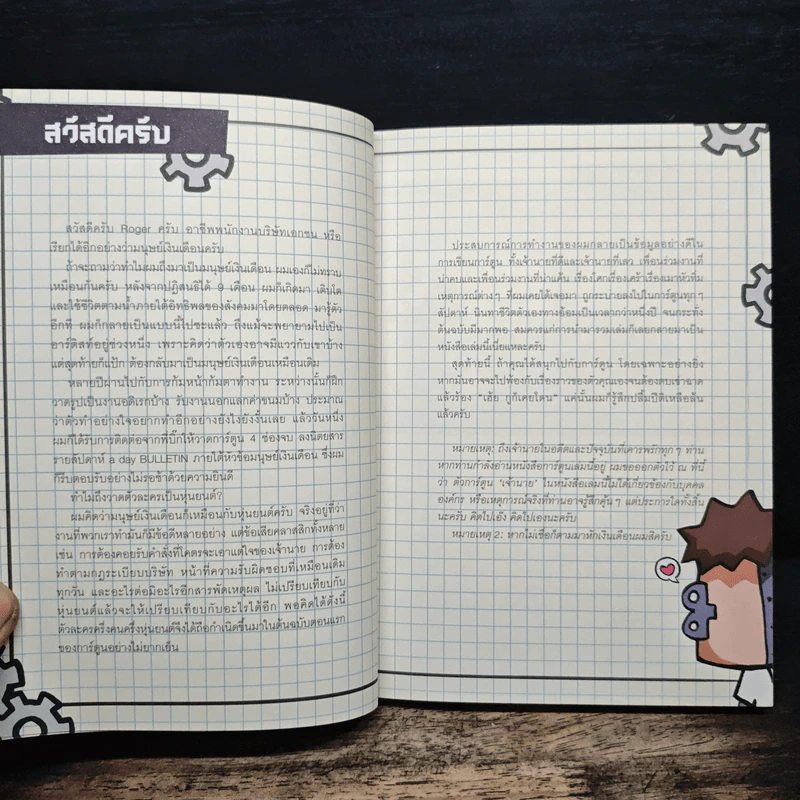 สวัสดีครับ
สวัสดีครับ Roger ครับ อาชีพพนักงานบริษัทเอกชน หรือ
เรียกได้อีกอย่างว่ามนุษย์เงินเดือนครับ
ถ้าจะถามว่าทำไมผมถึงมาเป็นมนุษย์เงินเดือน ผมเองก็ไม่ทราบ
เหมือนกันครับ หลังจากปฏิสนธิได้ 9 เดือน ผมก็เกิดมา เติบโต
และใช้ชีวิตตามน้ำภายใต้อิทธิพลของสังคมมาโดยตลอด มารู้ตัว
อีกที ผมก็กลายเป็นแบบนี้ไปซะแล้ว ถึงแม้จะพยายามไปเป็น
อาร์ติสท์อยู่ช่วงหนึ่ง เพราะคิดว่าตัวเองอาจมีแววกับเขาบ้าง
แต่สุดท้ายก็แป้ก ต้องกลับมาเป็นมนุษย์เงินเดือนเหมือนเดิม
หลายปีผ่านไปกับการก้มหน้าก้มตาทำงาน ระหว่างนั้นก็ฝึก
วาดรูปเป็นงานอดิเรกบ้าง รับงานนอกแลกค่าขนมบ้าง ประมาณ
ว่าตัวทำอย่างใจอยากทำอีกอย่างยังไงยังงั้นเลย แล้ววันหนึ่ง
ผมก็ได้รับการติดต่อจากพี่บิ๊กให้วาดการ์ตูน 4 ช่องจบ ลงนิตยสาร
รายสัปดาห์ a day BULLETIN ภายใต้หัวข้อมนุษย์เงินเดือน ซึ่งผม
ก็รีบตอบรับอย่างไม่รอช้าด้วยความยินดี
ทำไมถึงวาดตัวละครเป็นหุ่นยนต์?
ผมคิดว่ามนุษย์เงินเดือนก็เหมือนกับหุ่นยนต์ครับ จริงอยู่ที่ว่า
งานที่พวกเราทำมันก็มีข้อดีหลายอย่าง แต่ข้อเสียคลาสสิกทั้งหลาย
เช่น การต้องคอยรับคำสั่งที่โคตรจะเอาแต่ใจของเจ้านาย การต้อง
ทำตามกฎระเบียบบริษัท หน้าที่ความรับผิดชอบที่เหมือนเดิม
ทุกวัน และอะไรต่อมิอะไรอีกสารพัดเหตุผล ไม่เปรียบเทียบกับ
หุ่นยนต์แล้วจะให้เปรียบเทียบกับอะไรได้อีก พอคิดได้ดังนี้
ตัวละครครึ่งคนครึ่งหุ่นยนต์จึงได้ถือกำเนิดขึ้นมาในต้นฉบับตอนแรก
ของการ์ตูนอย่างไม่ยากเย็น
ประสบการณ์การทำงานของผมกลายเป็นข้อมูลอย่างดีใน
การเขียนการ์ตูน ทั้งเจ้านายที่ดีและเจ้านายที่เลว เพื่อนร่วมงานที่
น่าคบและเพื่อนร่วมงานที่น่าแค้น เรื่องโศกเรื่องเศร้าเรื่องเมาหัวทิ่ม
เหตุการณ์ต่างๆ ที่ผมเคยได้เจอมา ถูกระบายลงไปในการ์ตูนทุกๆ
สัปดาห์ นินทาชีวิตตัวเองทางอ้อมเป็นเวลากว่าหนึ่งปี จนกระทั่ง
ต้นฉบับมีมากพอ สมควรแก่การนำมารวมเล่มก็เลยกลายมาเป็น
หนังสือเล่มนี้เนี่ยแหละครับ
สุดท้ายนี้ ถ้าคุณได้สนุกไปกับการ์ตูน โดยเฉพาะอย่างยิ่ง
หากมันอาจจะไปพ้องกับเรื่องราวของตัวคุณเองจนต้องตบเข่าฉาด
แล้วร้อง "เฮ้ย กูก็เคยโดน" แค่นั้นผมก็รู้สึกปลื้มปีติเหลือล้น
แล้วครับ
หมายเหตุ: ถึงเจ้านายในอดีตและปัจจุบันที่เคารพรักทุกๆ ท่าน
หากท่านกำลังอ่านหนังสือการ์ตูนเล่มนี้อยู่ ผมขอออกตัวไว้ ณ ที่นี้
ว่า ตัวการ์ตูน 'เจ้านาย' ในหนังสือเล่มนี้ไม่ได้เกี่ยวข้องกับบุคคล
องค์กร หรือเหตุการณ์จริงที่ท่านอาจรู้สึกคุ้นๆ แต่ประการใดทั้งสิ้น
นะครับ คิดไปเอ๊ง คิดไปเองนะครับ
หมายเหตุ 2: หากไม่เชื่อก็ตามมาหักเงินเดือนผมสิครับ